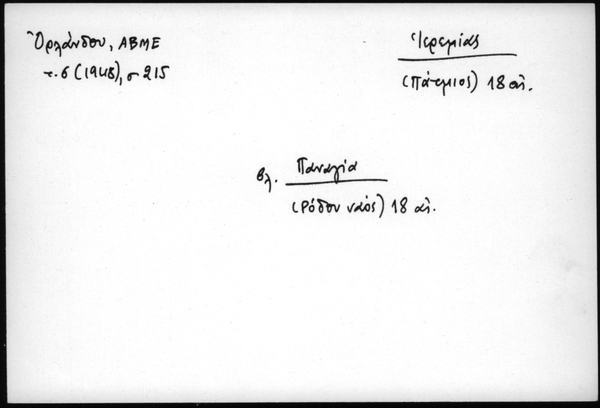 Ὀρλάνδου, ΑΒΜΕ
τ. 6 (1948), σ 215
Ἱερεμίας
(Πάτμιος) 18 αἰ.
βλ. Παναγία
(Ρόδου ναός) 18 αἰ.